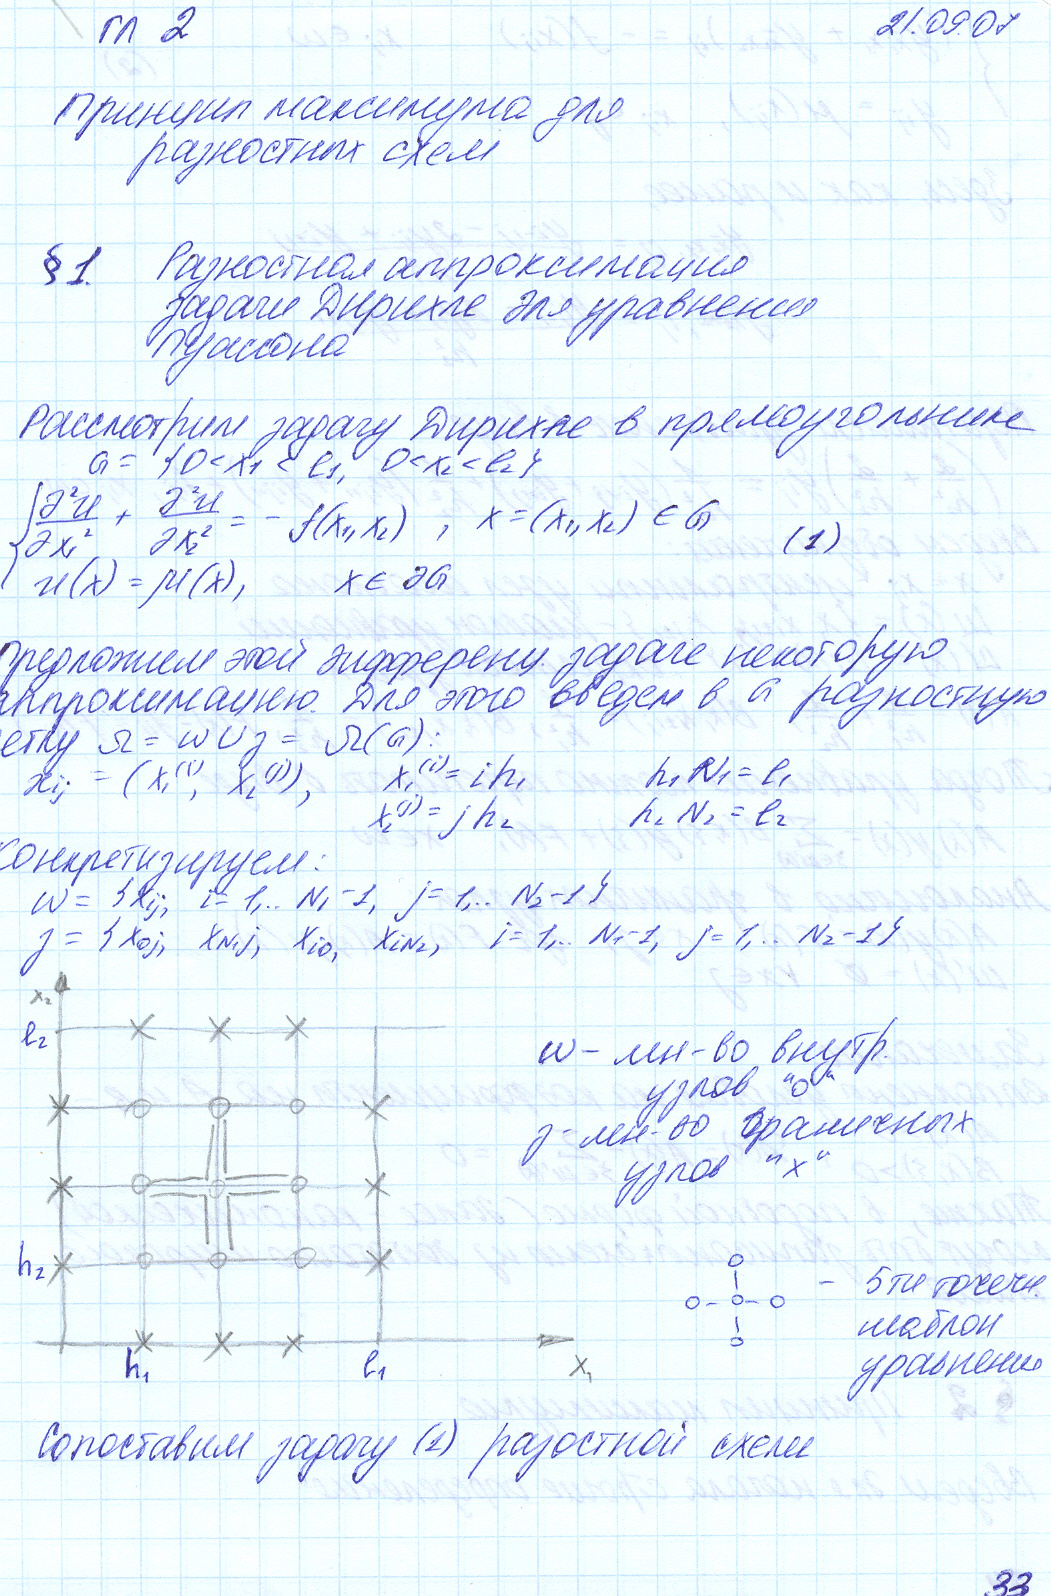 гл 2
21.09.07
Принцип максимума для
разностных схем
§1. Разностная аппроксимация
задачи Дирихле для уравнения
Пуассона
Рассмотрим задачу Дирихле в прямоугольнике
G = {0<x₁<l₁, 0<x₂<l₂}
{ ∂²u/∂x₁² + ∂²u/∂x₂² = - f(x₁, x₂), x = (x₁, x₂) ∈ G
(1)
u(x) = μ(x), x ∈ ∂G
Предложим этой дифференц. задаче некоторую
аппроксимацию. Для этого введем в G разностную
етку Ω = ω ∪ γ = Ω(G):
x_ij = (x₁^(i), x₂^(j)), x₁^(i) = ih₁ h₁N₁ = l₁
x₂^(j) = jh₂ h₂N₂ = l₂
Конкретизируем:
ω = {x_ij, i=1,.. N₁-1, j=1,.. N₂-1}
γ = {x_0j, x_N₁j, x_i0, x_iN₂, i=1,.. N₁-1, j=1,.. N₂-1}
x₂
l₂
h₂
h₁
l₁
x₁
ω - мн-во внутр.
узлов "о"
γ - мн-во граничных
узлов "x"
- 5ти точечн.
шаблон
уравнения
Сопоставим задачу (1) разостной схеме
33